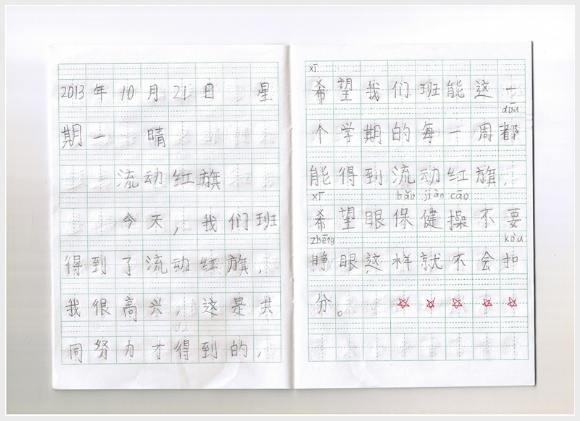 2013年10月21日 星
期一 晴
流动红旗
今天，我们班
得到了流动红旗，
我很高兴，这是共
同努力才得到的，
xī
希望我们班能这一
dōu
个学期的每一周都
能得到流动红旗，
xī bǎo jiàn cāo
希望眼保健操不要
zhēng kòu
睁眼，这样就不会扣
分。